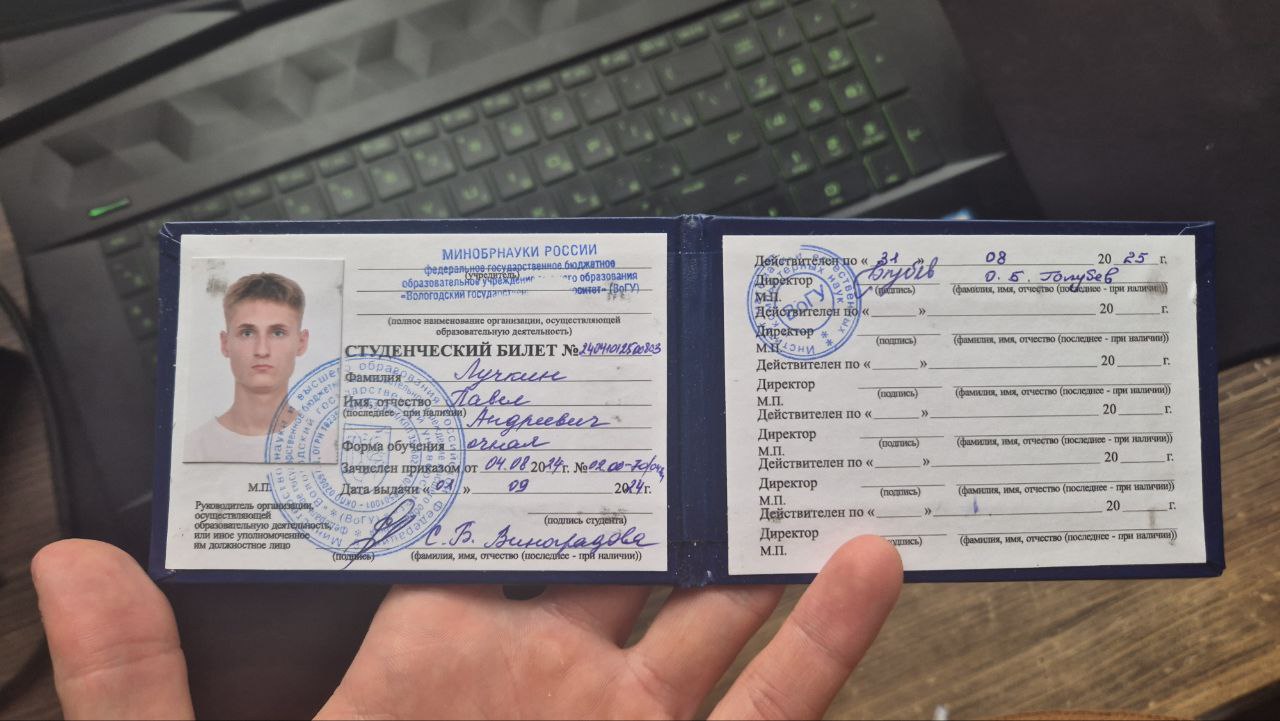 МИНОБРНАУКИ РОССИИ
федеральное государственное бюджетное
(учредитель)
образовательное учреждение образования
«Вологодский (ВоГУ)
(полное наименование организации, осуществляющей
образовательную деятельность)
СТУДЕНЧЕСКИЙ БИЛЕТ №
Фамилия Лучкин
Имя, отчество Павел
(последнее - при наличии) Андреевич
Форма обучения очная
Зачислен приказом от 04.08 2024 г. №
Дата выдачи « 02 » 09 2024 г.
М.П.
(подпись студента)
Руководитель организации,
осуществляющей
образовательную деятельность,
или иное уполномоченное
им должностное лицо
С.Б. Виноградова
(подпись) (фамилия, имя, отчество (последнее - при наличии))
Действителен по « 31 » 08 20 25 г.
Директор О. Б. Голубев
М.П. (подпись) (фамилия, имя, отчество (последнее - при наличии))
ВоГУ
Действителен по « » 20 г.
Директор
М.П. (подпись) (фамилия, имя, отчество (последнее - при наличии))
Действителен по « » 20 г.
Директор
М.П. (подпись) (фамилия, имя, отчество (последнее - при наличии))
Действителен по « » 20 г.
Директор
М.П. (подпись) (фамилия, имя, отчество (последнее - при наличии))
Действителен по « » 20 г.
Директор
М.П. (подпись) (фамилия, имя, отчество (последнее - при наличии))
Действителен по « » 20 г.
Директор
М.П. (подпись) (фамилия, имя, отчество (последнее - при наличии))